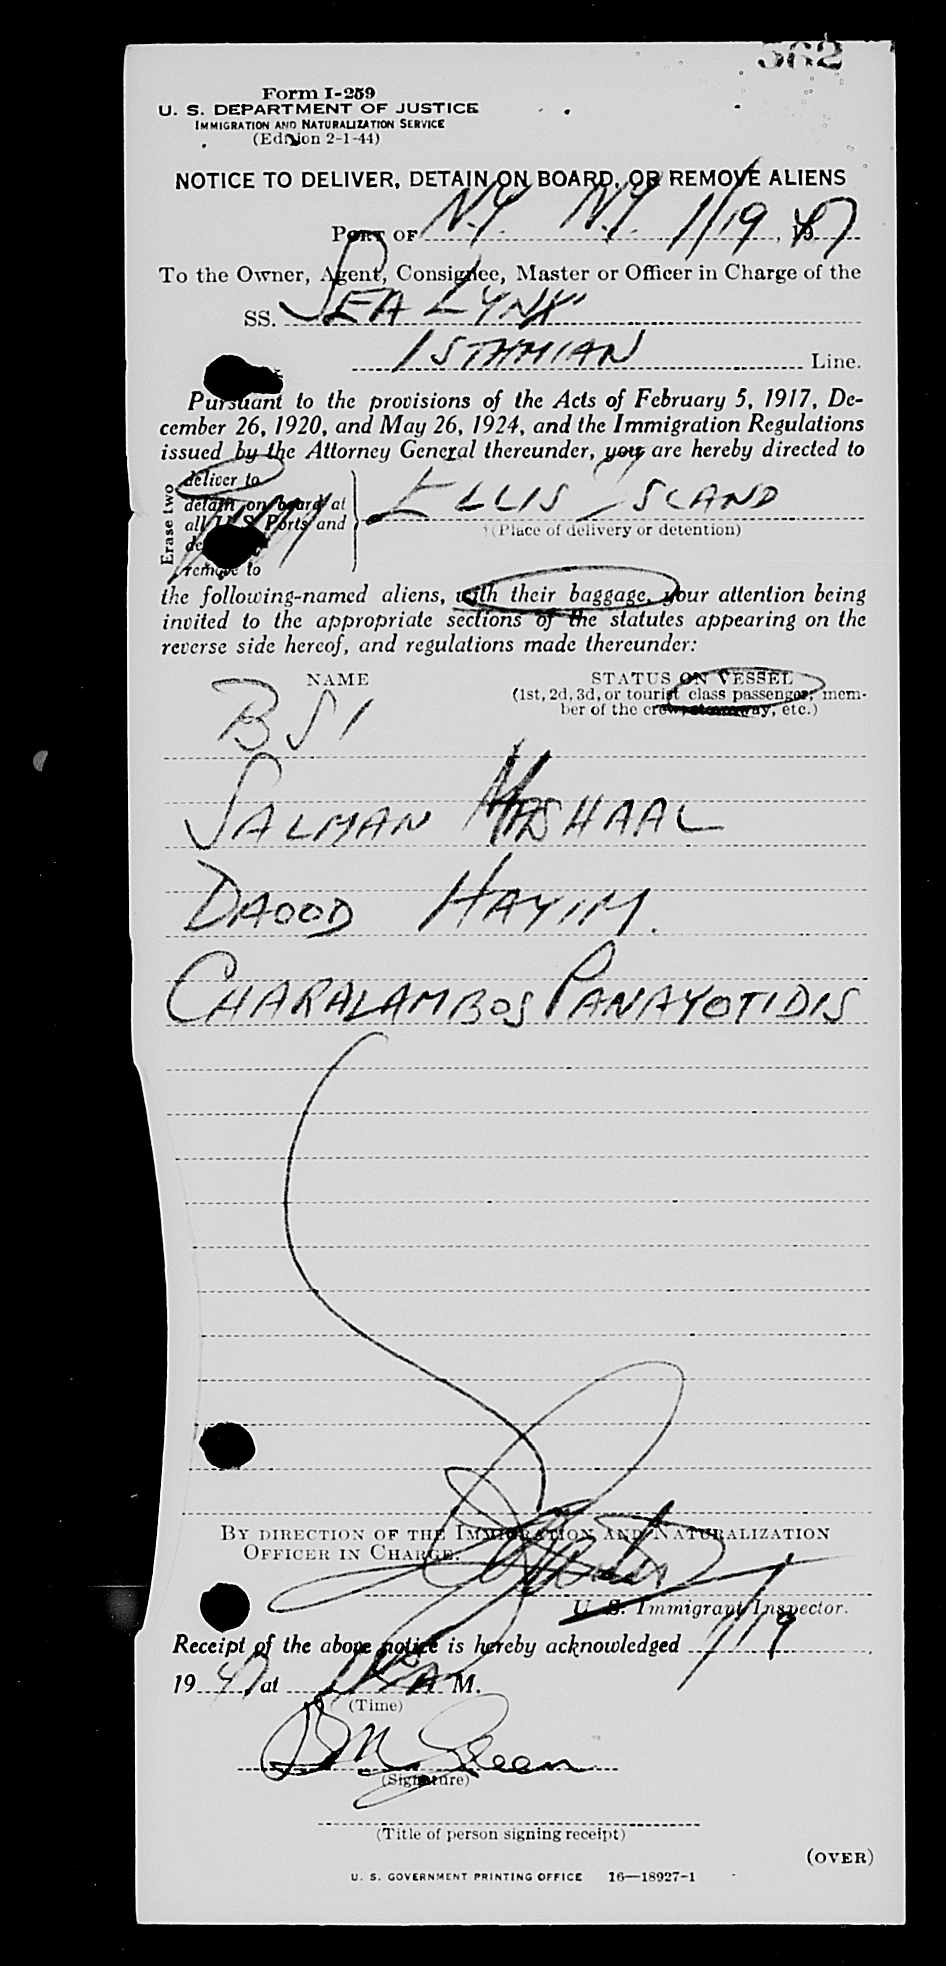 562
Form I-259
U. S. DEPARTMENT OF JUSTICE
IMMIGRATION AND NATURALIZATION SERVICE
(Edition 2-1-44)
NOTICE TO DELIVER, DETAIN ON BOARD, OR REMOVE ALIENS
PORT OF N.Y. N.Y. 1/19, 1947
To the Owner, Agent, Consignee, Master or Officer in Charge of the
SS. SEA LYNX
ISTHMIAN Line.
Pursuant to the provisions of the Acts of February 5, 1917, De-
cember 26, 1920, and May 26, 1924, and the Immigration Regulations
issued by the Attorney General thereunder, you are hereby directed to
Erase two
deliver to
detain on board at
all U S Ports and
remove to
ELLIS ISLAND
(Place of delivery or detention)
the following-named aliens, with their baggage, your attention being
invited to the appropriate sections of the statutes appearing on the
reverse side hereof, and regulations made thereunder:
NAME
STATUS ON VESSEL
(1st, 2d, 3d, or tourist class passenger, mem-
ber of the crew, stowaway, etc.)
BSI
SALMAN MASHAAL
DAOOD HAYIM.
CHARALAMBOS PANAYOTIDIS
BY DIRECTION OF THE IMMIGRATION AND NATURALIZATION
OFFICER IN CHARGE:
U. S. Immigrant Inspector.
Receipt of the above notice is hereby acknowledged 1/19
1947 at A M.
(Time)
(Signature)
(Title of person signing receipt)
(OVER)
U. S. GOVERNMENT PRINTING OFFICE 16—18927-1